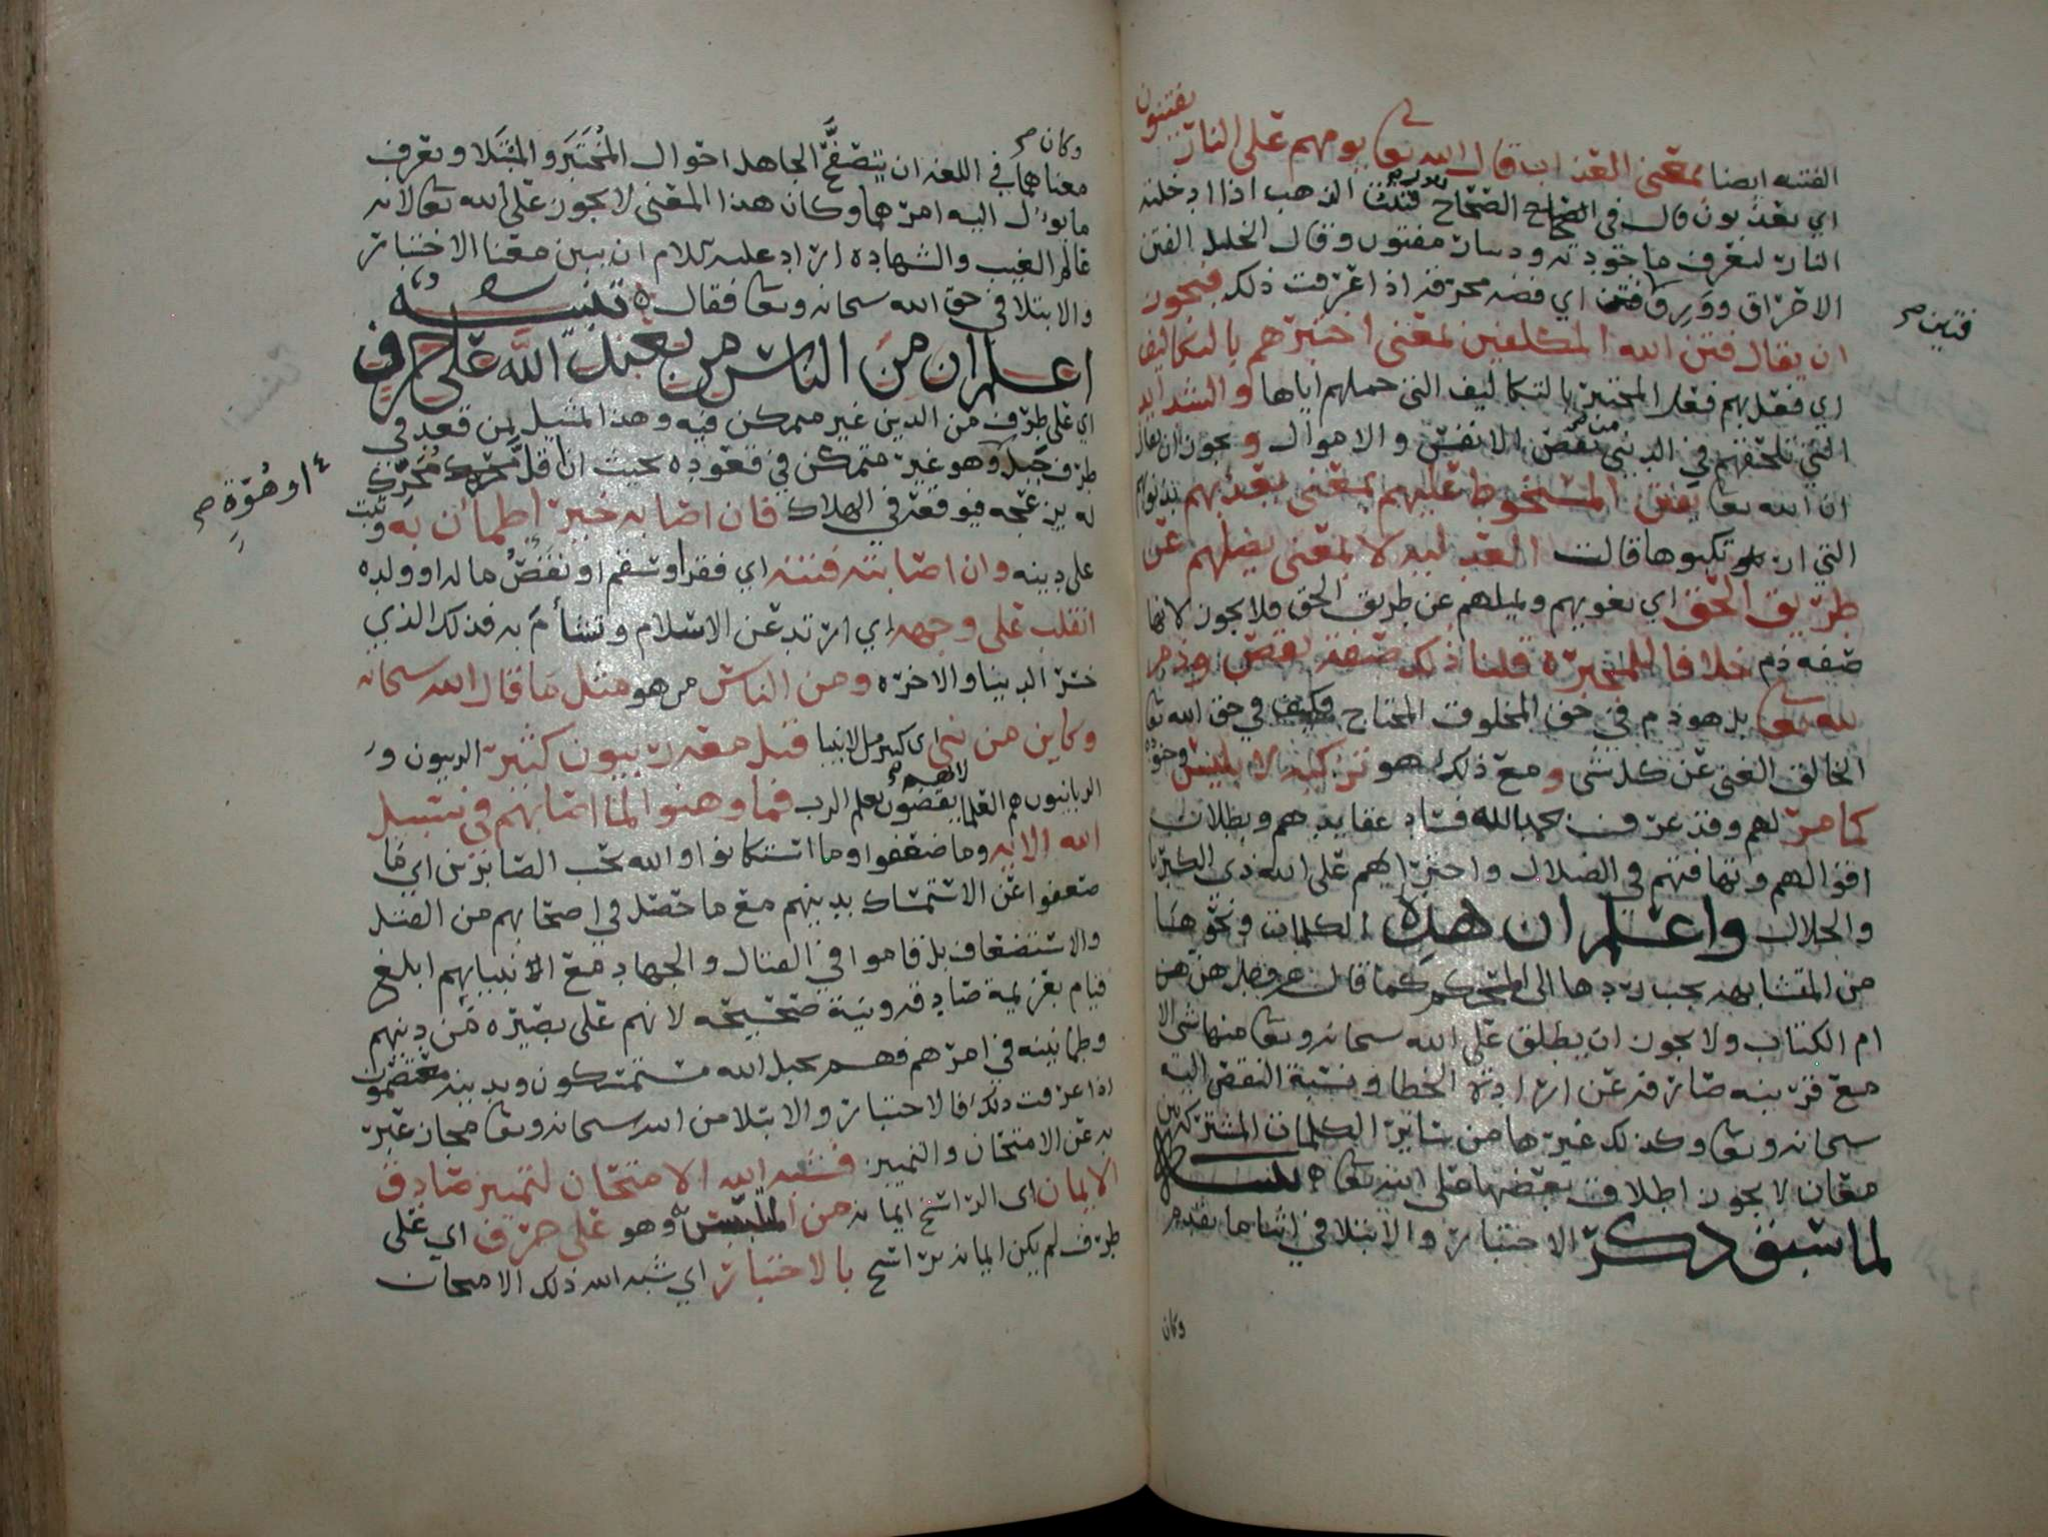 يفتنون
الفتنه ايضا بمعنى العذاب قال الله تعا يوم هم على النار
اي يعذبون قال في الصحاح فتنت الذهب اذا ادخلته
النار لتعرف ما جودته ودينار مفتون وقال الخليل الفتن
الاحراق وورق فتين اي فضه محرقه اذا عرفت ذلك فيجوز
فتين صح
ان يقال فتن الله المكلفين بمعنى اختبرهم بالتكاليف
اي فعل بهم فعل المختبر بالتكاليف التي حملهم اياها والشدايد
التي تلحقهم في الدين من نقص الانفس والاموال ويجوز ان يقال
ان الله تعا يفتن المسخوط عليهم بمعنى يعذبهم بذنوبهم
التي ارتكبوها قالت العدليه لا بمعنى يضلهم عن
طريق الحق اي يغويهم ويميلهم عن طريق الحق فلا يجوز لانها
صفه ذم خلافا للمجبرة قلنا ذلك صفة نقص وذم
لله تعا بل هو ذم في حق المخلوق المحتاج فكيف في حق الله تعا
الخالق الغني عن كل شي ومع ذلك هو تزكيه لابليس وجنوده
كما مر لهم وقد عرفت بحمد الله فساد عقايدهم وبطلان
اقوالهم وتهافتهم في الضلال واجترايهم على الله ذي الكبريا
والجلال واعلم ان هذه الكلمات ونحوها
من المتشابهه يجب ردها الى المحكم كما قال عز وجل هن
ام الكتاب ولا يجوز ان يطلق على الله سبحانه وتعا منها شي الا
مع قرينه صارفه عن ارادة الخطا ونسبة النقص اليه
سبحانه وتعا وكذلك غيرها من ساير الكلمات المشتركه بين
معان لا يجوز اطلاق بعضها على الله تعا
لما سبق ذكر الاختبار والابتلا في اثنا ما تقدم
وكان
وكان صح
معناهما في اللغه ان يتصفح الجاهل احوال المختبر والمبتلا ويعرف
ما يؤل اليه امرها وكان هذا المعنى لا يجوز على الله تعا لانه
عالم الغيب والشهاده اراد عليه السلام ان يبين معنا الاختبار
والابتلا في حق الله سبحانه وتعا فقال تنبيه
اعلم ان من الناس من يعبد الله على حرف
اي على طرف من الدين غير متمكن فيه وهذا المثيل بمن قعد في
طرف جبل وهو غير متمكن في قعوده بحيث ان اقل محرك
او هوة صح
له يزعجه فيوقعه في الهلاك فان اصابه خير اطمان به وثبت
على دينه وان اصابته فتنه اي فقر او سقم او نقص ماله او ولده
انقلب على وجهه اي ارتد عن الاسلام وتشأم به فذلك الذي
خسر الدنيا والاخره ومن الناس من هو مثل ما قال الله سبحانه
وكاين من نبي اي كثير من الانبيا قتل معه ربيون كثير الربيون و
الربانيون هم العلما بعلم الرب فما وهنوا لما اصابهم في سبيل
الله الايه وما ضعفوا وما استكانوا والله يحب الصابرين اي ما
ضعفوا عن الاستمساك بدينهم مع ما حصل في اصحابهم من القتل
والاستضعاف بل قاموا في القتال والجهاد مع الانبيايهم ابلغ
قيام بعزيمة صادقه ونية صحيحه لانهم على بصيره من دينهم
وطمانينه في امرهم فهم بحبل الله مستمسكون وبدينه معتصمون
اذا عرفت ذلك فالاختبار والابتلا من الله سبحانه وتعا مجاز عبر
به عن الامتحان والتمييز فشبه الله الامتحان لتمييز صادق
الايمان اي الراسخ ايمانه من وهو على حرف اي على
طرف لم يكن ايمانه براسخ بالاختبار اي شبه الله ذلك الامتحان